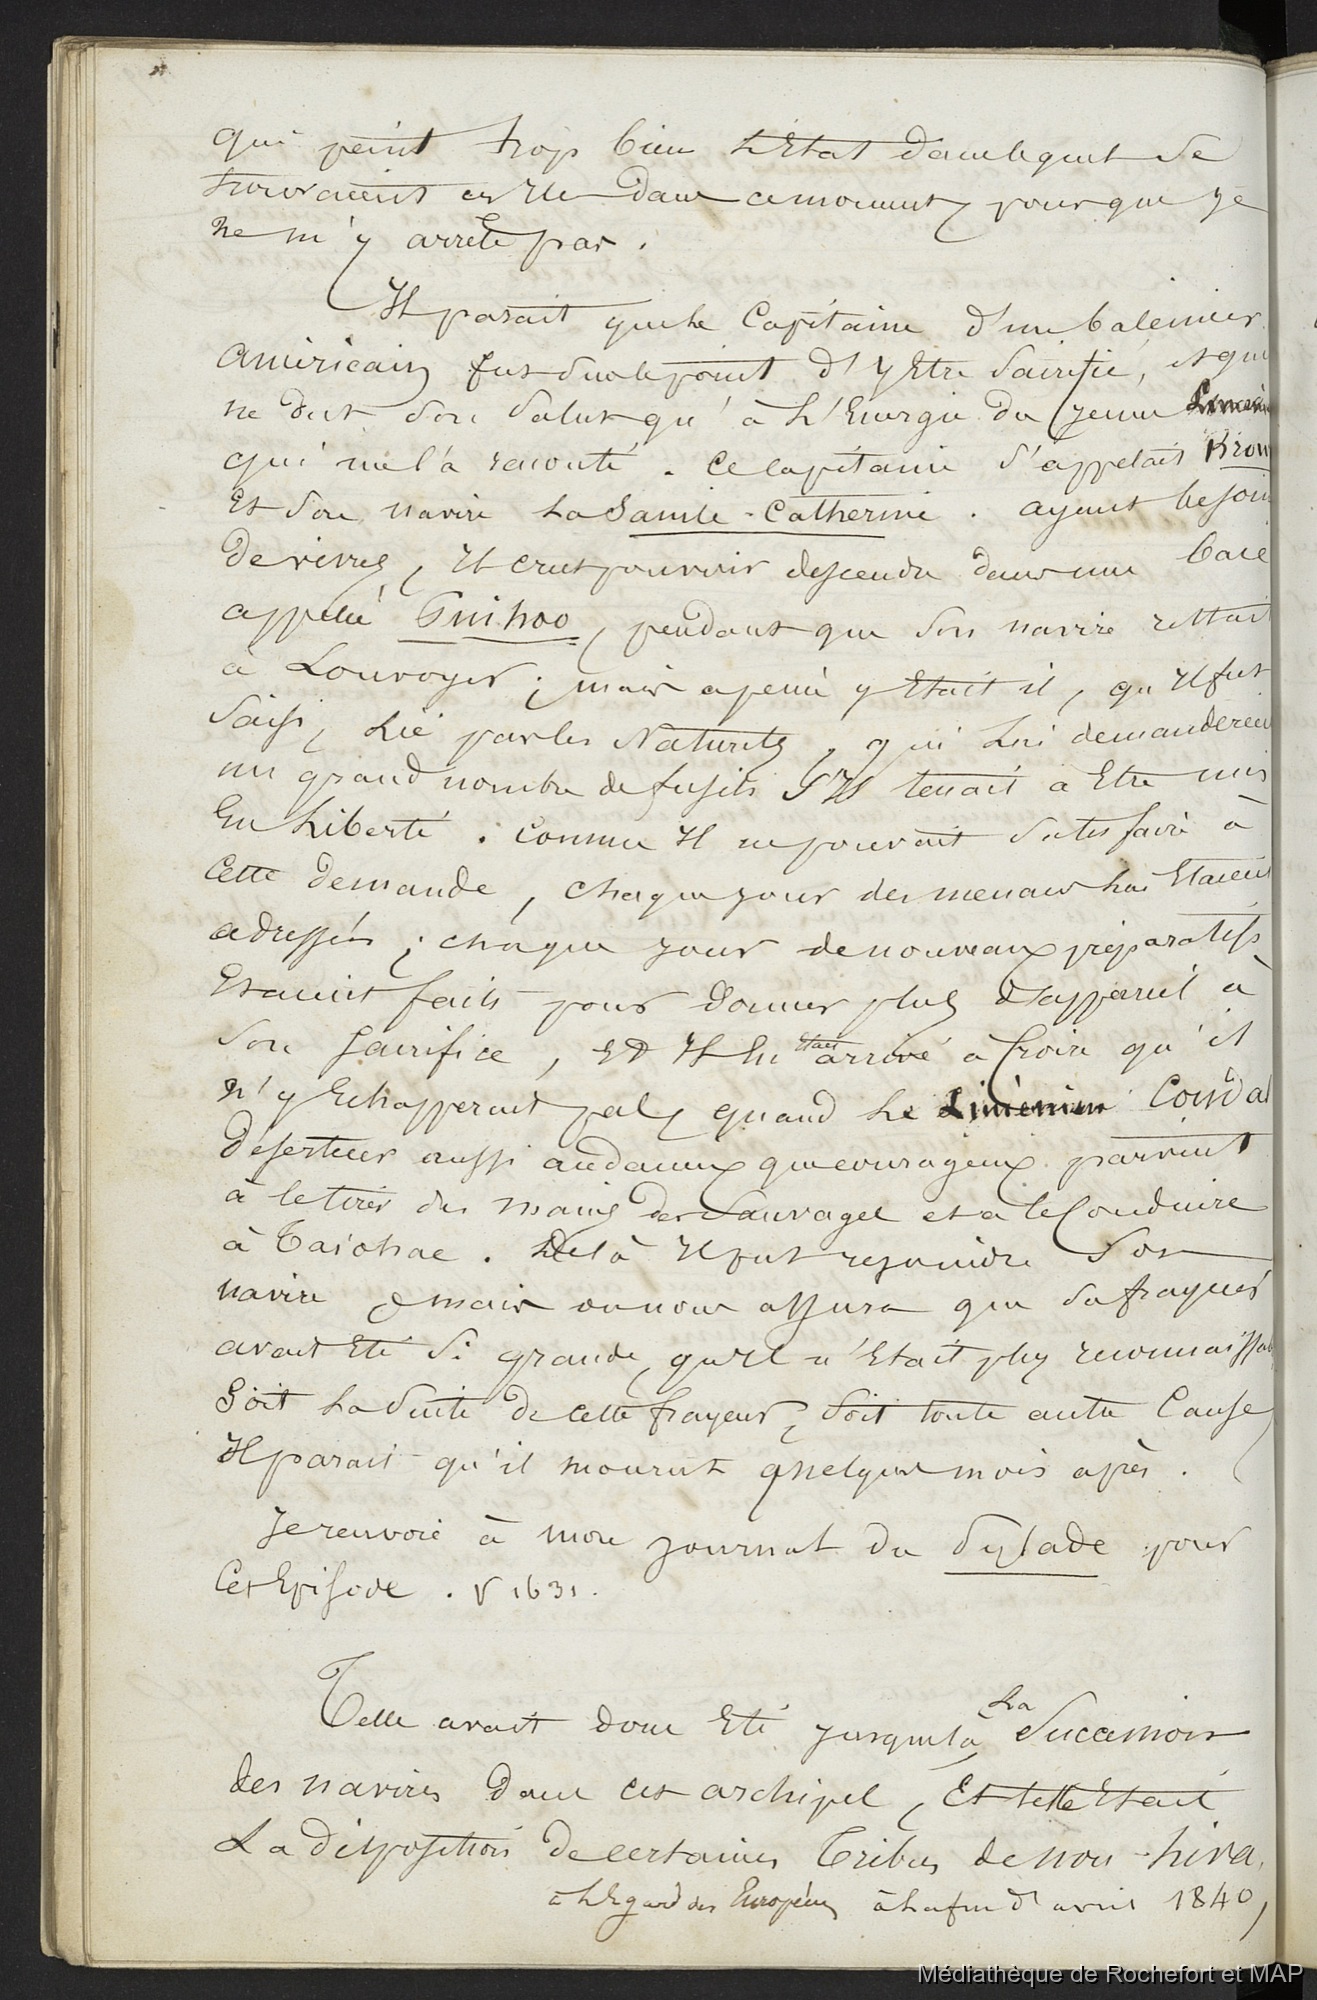 qui peint trop bien L'Etat dans lequel se
trouvaient ces Iles dans ce moment, pour que je
ne m'y arrête pas.
Il parait que Le Capitaine d'un baleinier
américain fut sur le point d'y Etre sacrifié, et qu'il
ne dut son salut qu'à L'Energie du jeune Liménien
qui me l'a raconté. Ce Capitaine s'appelait Brown
Et son navire La Sainte-Catherine. ayant besoin
de vivres, Il crut pouvoir descendre dans une baie
appelée, pendant que son navire restait
à Louvoyer; mais a peine y Etait il, qu'Il fut
saisi, Lié par les Naturels, qui Lui demandèrent
un grand nombre de fusils s'Il tenait à Etre mis
En Liberté. Comme Il ne pouvait satisfaire à
Cette demande, chaque jour des menaces Lui Etaient
adressées; chaque jour de nouveaux préparatifs
Etaient faits pour donner plus d'appareil à
son sacrifice, Et Il En Etait arrivé à Croire qu'il
n'y Echapperait pas, quand Le Liménien
déserteur aussi audacieux que courageux parvint
à le tirer des mains des Sauvages et à le Conduire
à Taiohae. De Là Il put rejoindre son
navire, mais on nous assura que sa frayeur
avait Eté si grande, qu'Il n'Etait plus reconnaissable.
Soit La Suite de cette frayeur, soit toute autre Cause,
Il parait qu'il mourut quelques mois après.
Je renvoie à mon journal du Pylade pour
Cet Episode. V 1631.
Telle avait donc Eté jusque là, La
des navires dans cet archipel, Et telle Etait
La disposition de certaines Tribus de nou-hiva,
à L'Egard des Européens à La fin d'avril 1840,
Médiathèque de Rochefort et MAP